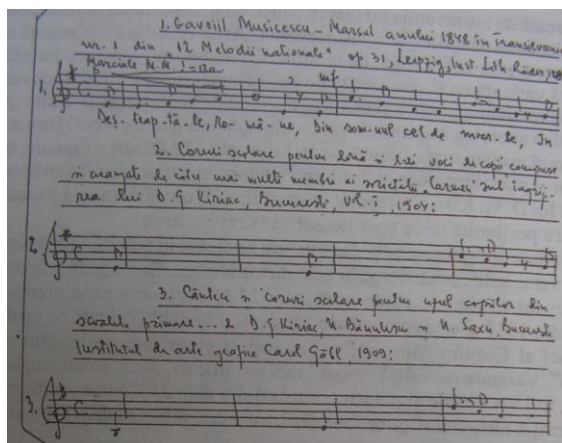 1. Gavriil Musicescu - Marșul anului 1848 în Transilvania
nr. 1 din "12 Melodii naționale" op. 31, Leipzig, Inst. Lith. Röder,
Marciale M.M. = 120
p mf
1.
Deș-teap-tă-te, Ro-mâ-ne, Din som-nul cel de moar-te, În
2. Coruri școlare pentru două și trei voci de copii, compuse
și aranjate de către mai mulți membri ai societății "Carmen" sub îngriji-
rea lui D. G. Kiriac, București, vol. I, 1904:
2. C
3. Cântece și coruri școlare pentru uzul copiilor din
școalele primare... de D. G. Kiriac, și N. Saxu, București
Institutul de arte grafice Carol Göbl, 1909:
3. C